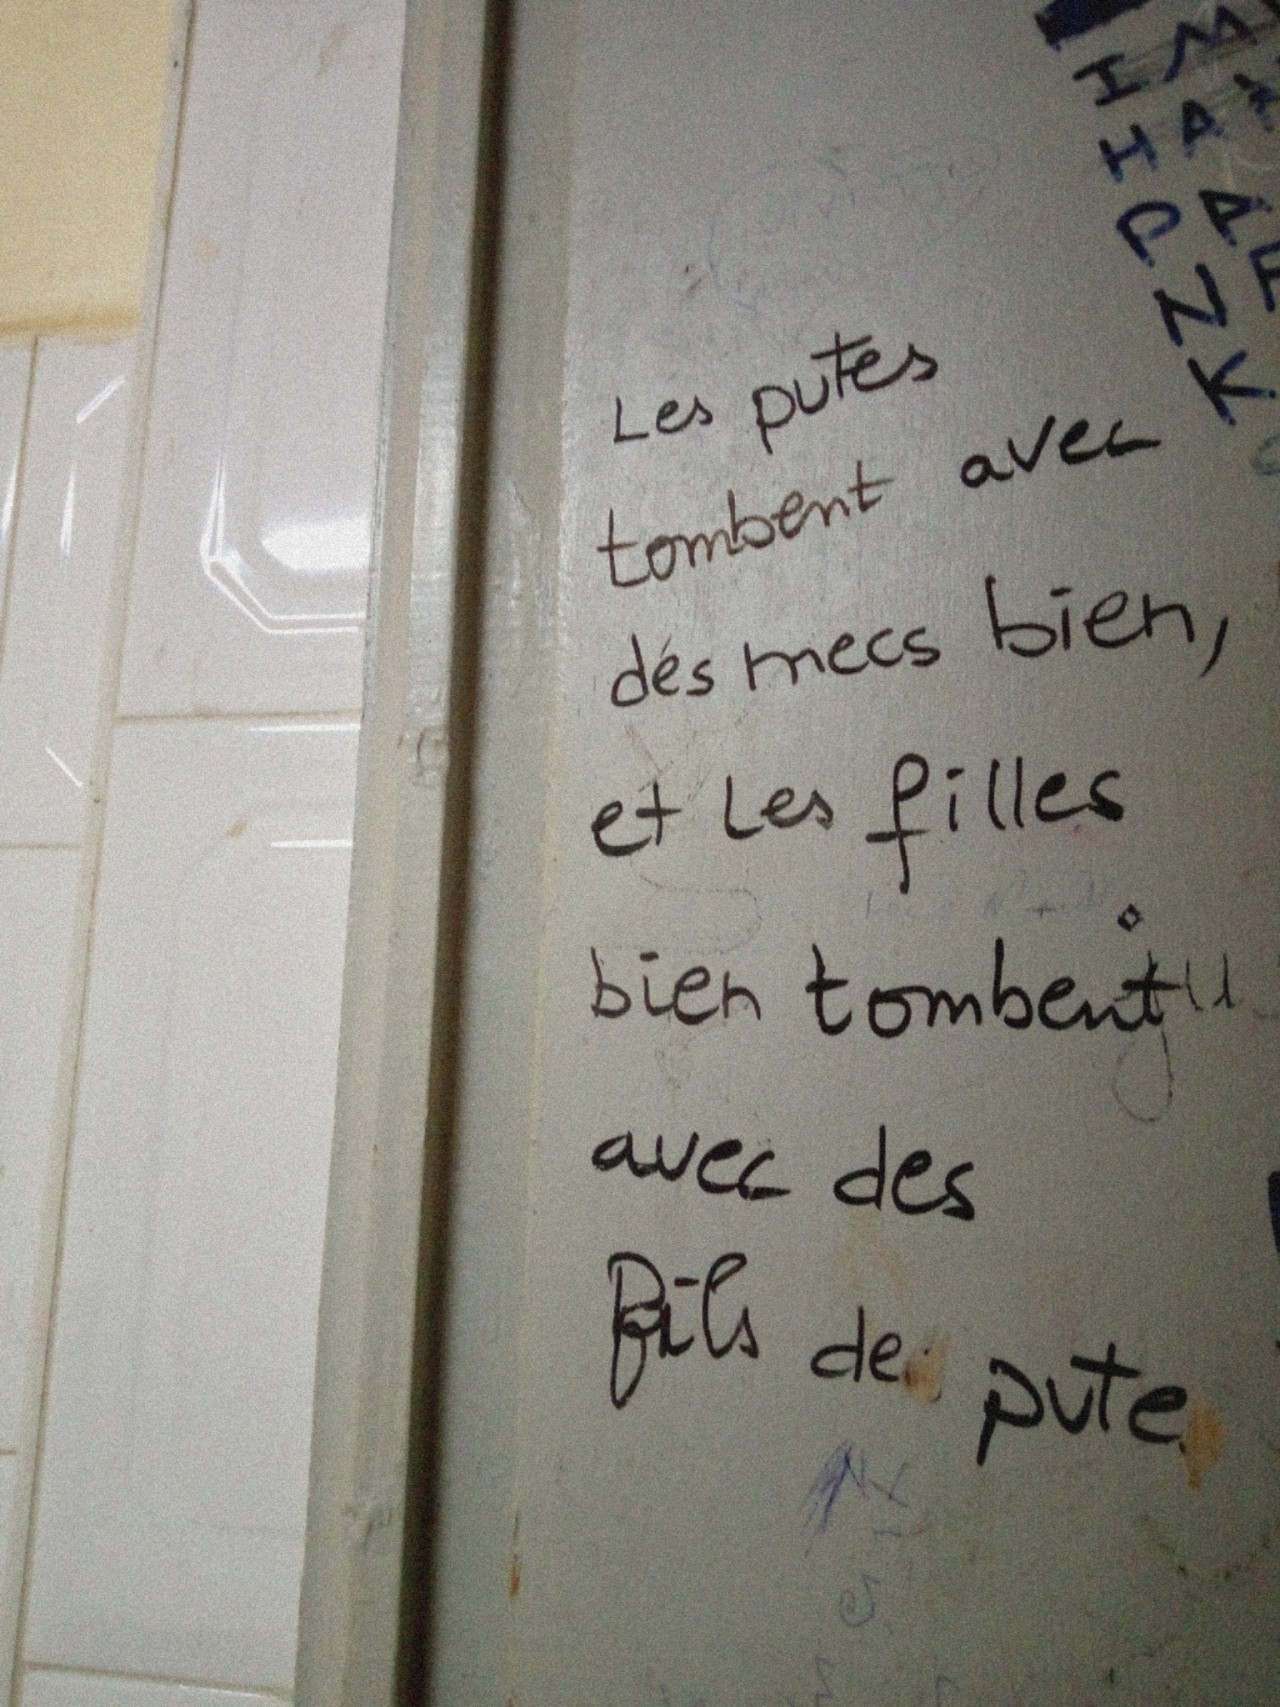 Les putes
tombent avec
des mecs bien,
et Les filles
bien tombent
avec des
fils de pute.